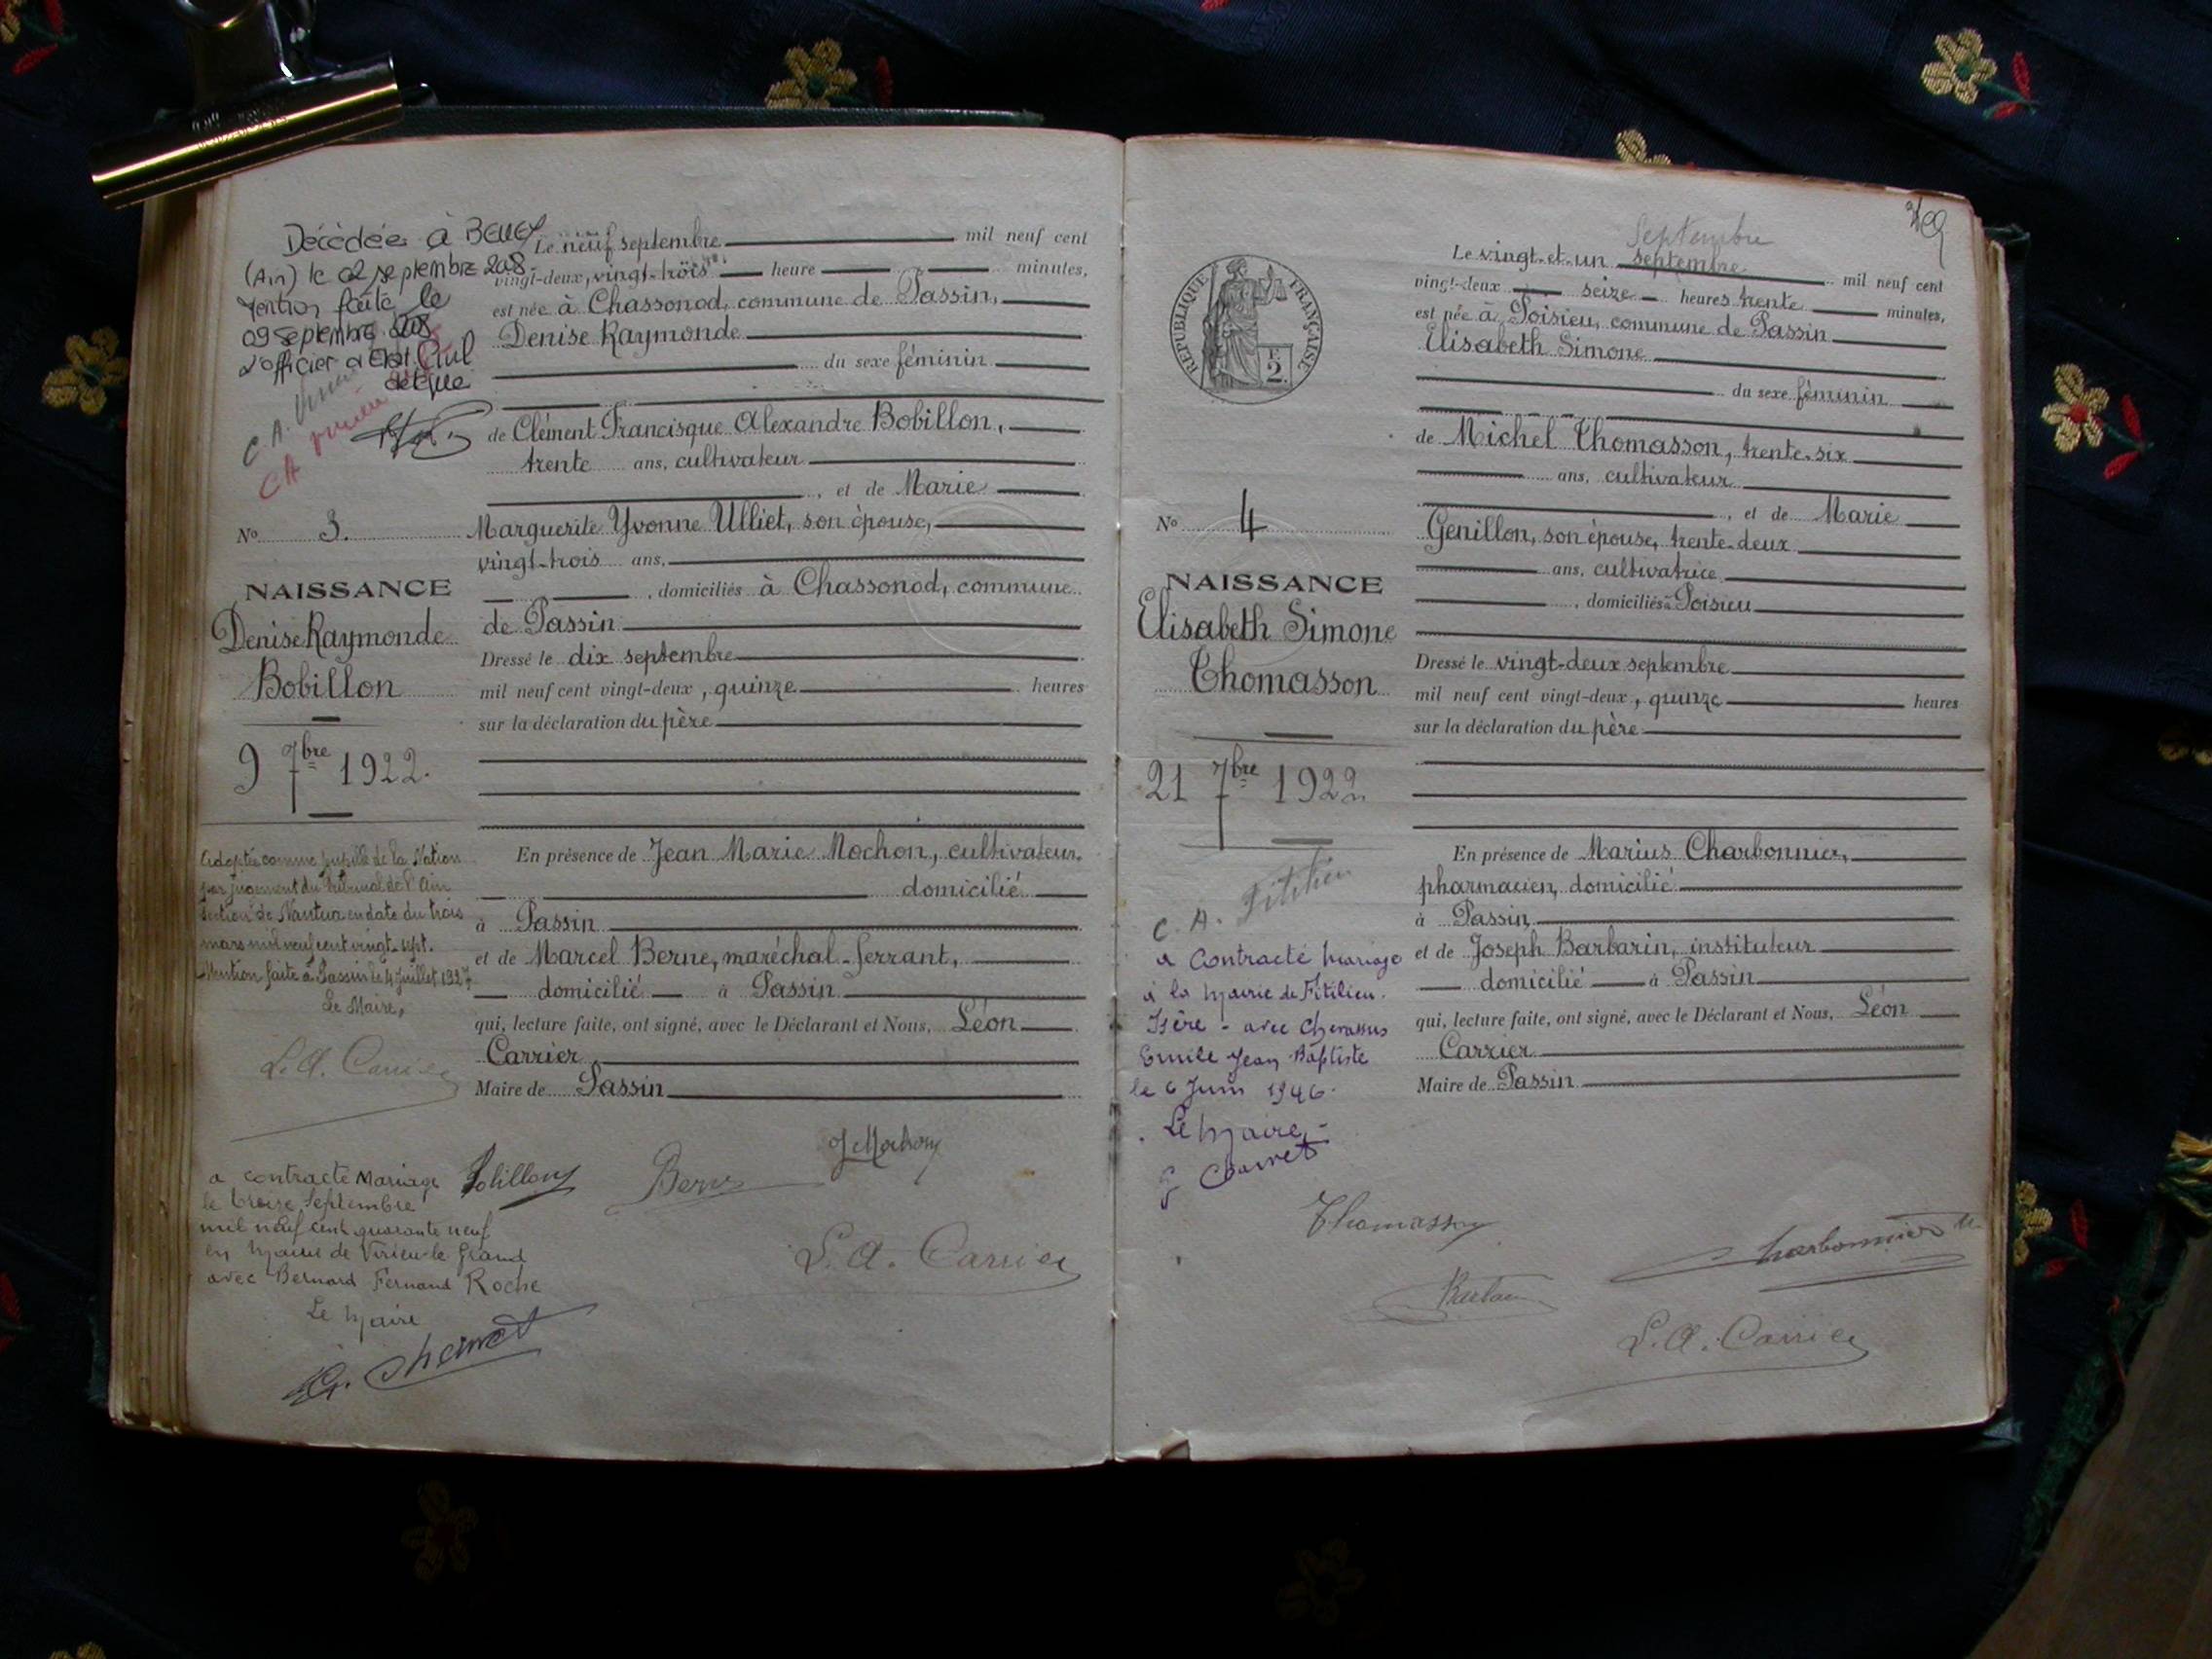 Décédée à BELLEY
(Ain) le 02 septembre 2008.
Mention faite le
09 septembre 2008
L'officier d'Etat Civil
délégué
C. A.
CA
N° 3.
NAISSANCE
Denise Raymonde
Bobillon
9 7bre 1922.
Adoptée comme pupille de la Nation
par jugement du tribunal de l'Ain
section de Nantua en date du trois
mars mil neuf cent vingt-sept.
Mention faite à Passin le 4 juillet 1927
Le Maire,
L. A. Carrier
a contracté Mariage
le treize Septembre
mil neuf cent quarante neuf
en Mairie de Virieu-le Grand
avec Bernard Fernand Roche
Le Maire
Le neuf septembre mil neuf cent
vingt-deux, vingt-trois heure minutes,
est née à Chassonod, commune de Passin,
Denise Raymonde
du sexe féminin
de Clément Francisque Alexandre Bobillon,
trente ans, cultivateur
, et de Marie
Marguerite Yvonne Ulliet, son épouse,
vingt-trois ans,
, domiciliés à Chassonod, commune
de Passin
Dressé le dix septembre
mil neuf cent vingt-deux, quinze heures
sur la déclaration du père
En présence de Jean Marie Mochon, cultivateur,
domicilié
à Passin
et de Marcel Berne, maréchal-ferrant,
domicilié à Passin
qui, lecture faite, ont signé, avec le Déclarant et Nous, Léon
Carrier
Maire de Passin
J Mochon
Bobillon Berne
L. A. Carrier
RÉPUBLIQUE FRANÇAISE
F.
2.
N° 4
NAISSANCE
Elisabeth Simone
Thomasson
21 7bre 1922
C. A. Fitilieu
a Contracté mariage
à la Mairie de Fitilieu.
Isère - avec
Emile Jean Baptiste
le 6 Juin 1946.
Le Maire,
Septembre
Le vingt-et-un septembre mil neuf cent
vingt-deux seize heures trente minutes,
est née à Poisieu, commune de Passin
Elisabeth Simone
du sexe féminin
de Michel Thomasson, trente-six
ans, cultivateur
, et de Marie
Genillon, son épouse, trente-deux
ans, cultivatrice
, domiciliés à Poisieu
Dressé le vingt-deux septembre
mil neuf cent vingt-deux, quinze heures
sur la déclaration du père
En présence de Marius Charbonnier,
pharmacien, domicilié
à Passin
et de Joseph Barbarin, instituteur
domicilié à Passin
qui, lecture faite, ont signé, avec le Déclarant et Nous, Léon
Carrier
Maire de Passin
Thomasson
Charbonnier M
L. A. Carrier